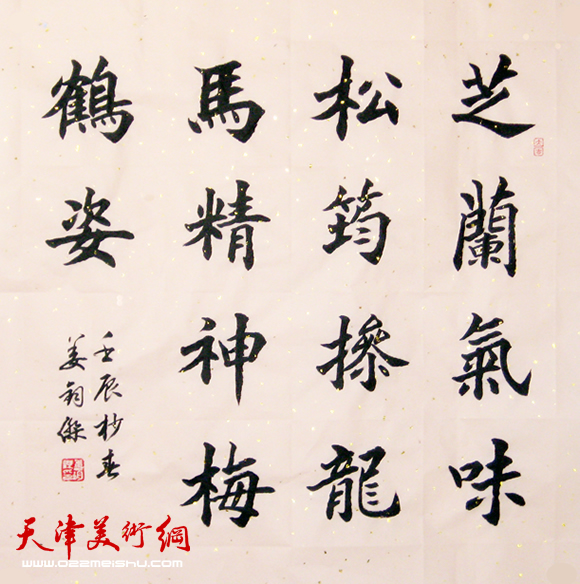 芝蘭氣味
松筠摻龍
馬精神梅
鶴姿
壬辰杪春
姜鈞傑
天津美術網
www.022meishu.com